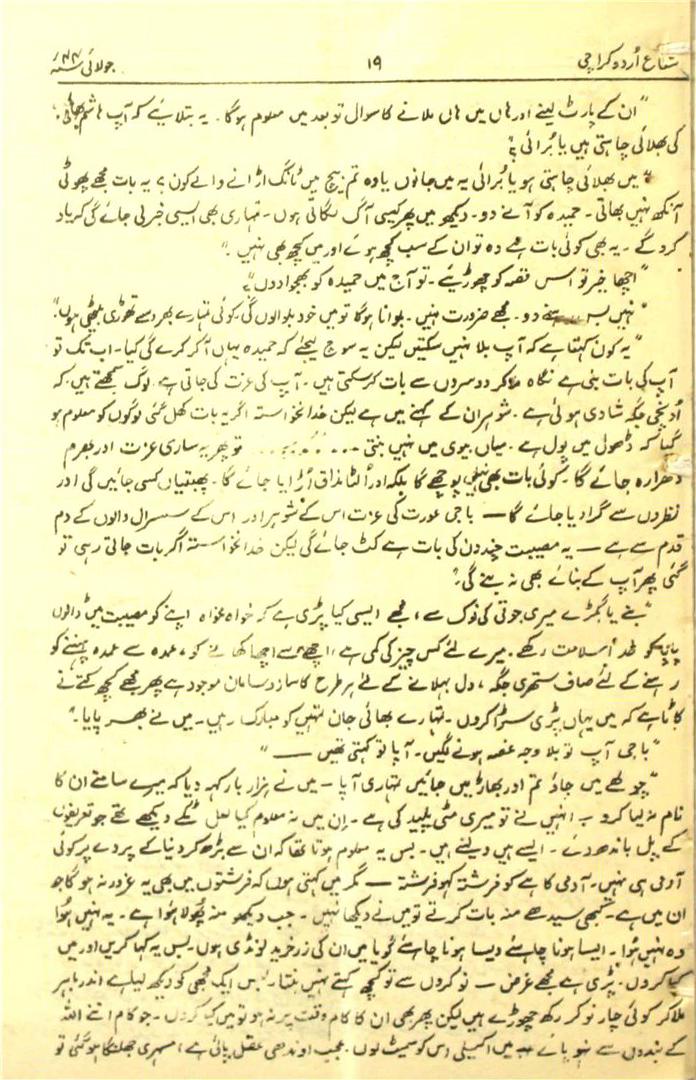 شعاع اُردو کراچی ۱۹ جولائی ۴۴ء
"ان کے پارٹ لینے اور ہاں میں ہاں ملانے کا سوال تو بعد میں معلوم ہوگا۔ یہ بتلائیے کہ آپ ہاشم بھائی
کی بھلائی چاہتی ہیں یا بُرائی؟"
"میں بھلائی چاہتی ہو یا بُرائی یہ میں جانوں یا وہ تم بیچ میں ٹانگ اڑانے والے کون؟ یہ بات مجھے پھوٹی
آنکھ نہیں بھاتی۔ حمیدہ کو آنے دو۔ دیکھو میں پھر کیسی آگ لگاتی ہوں۔ تمہاری بھی ایسی خبر لی جائے گی کہ یاد
کرو گے۔ یہ بھی کوئی بات ہے وہ تو ان کے سب کچھ ہوئے اور میں کچھ بھی نہیں۔"
"اچھا خیر تو اس قصہ کو چھوڑیئے۔ تو آج میں حمیدہ کو بھجوا دوں"؟
"نہیں بس رہنے دو۔ مجھے ضرورت نہیں۔ بلوانا ہوگا تو میں خود بلوا لوں گی، کوئی تمہارے بھروسے تھوڑی بیٹھی ہوں"
"یہ کون کہتا ہے کہ آپ بلا نہیں سکتیں لیکن یہ سوچ لیجئے کہ حمیدہ یہاں آ کر کرے گی کیا۔ اب تک تو
آپ کی بات بنی ہے نگاہ ملا کر دوسروں سے بات کر سکتی ہیں۔ آپ کی عزت کی جاتی ہے، لوگ سمجھتے ہیں کہ
اُونچی جگہ شادی ہوئی ہے۔ شوہر ان کے کہنے میں ہے لیکن خدانخواستہ اگر یہ بات کھل گئی لوگوں کو معلوم ہو
گیا کہ ڈھول میں پول ہے۔ میاں بیوی میں نہیں بنتی ۔۔۔ تو پھر یہ ساری عزت اور بھرم
دھرا رہ جائے گا۔ کوئی بات بھی نہیں پوچھے گا بلکہ اور اُلٹا مذاق اُڑایا جائے گا۔ پھبتیاں کسی جائیں گی اور
نظروں سے گرا دیا جائے گا — باجی عورت کی عزت اس کے شوہر اور اس کے سسرال والوں کے دم
قدم سے ہے — یہ مصیبت چند دن کی بات ہے کٹ جائے گی لیکن خدانخواستہ اگر بات جاتی رہی تو
گئی پھر آپ کے بنائے بھی نہ بنے گی"
"بنے یا بگڑے میری جوتی کی نوک سے، مجھے ایسی کیا پڑی ہے کہ خواہ مخواہ اپنے کو مصیبت میں ڈالوں
پاپا کو خدا سلامت رکھے۔ میرے لئے کس چیز کی کمی ہے، اچھے سے اچھا کھانے کو، عمدہ سے عمدہ پہننے کو
رہنے کے لئے صاف ستھری جگہ، دل بہلانے کے لئے ہر طرح کا ساز و سامان موجود ہے پھر مجھے کچھ کتے نے
کاٹا ہے کہ میں یہاں پڑی سڑا کروں۔ تمہارے بھائی جان تمہیں کو مبارک رہیں۔ میں نے بھر پایا۔"
"باجی آپ تو بلا وجہ غصہ ہونے لگیں۔ آپا تو کہتی تھیں —"
"چولھے میں جاؤ تم اور بھاڑ میں جائیں تمہاری آپا۔ میں نے ہزار بار کہہ دیا کہ میرے سامنے ان کا
نام نہ لیا کرو۔ انہیں نے تو میری مٹی پلید کی ہے۔ اِن میں نہ معلوم کیا لعل ٹکے دیکھے تھے جو تعریفوں
کے پل باندھ دئے۔ ایسے ہیں ویسے ہیں۔ بس یہ معلوم ہوتا تھا کہ ان سے بڑھ کر دنیا کے پردے پر کوئی
آدمی ہی نہیں۔ آدمی کاہے کو فرشتہ کہو فرشتہ — مگر میں کہتی ہوں کہ فرشتوں میں بھی یہ غرور نہ ہوگا جو
ان میں ہے۔ کبھی سیدھے منہ بات کرتے تو میں نے دیکھا نہیں۔ جب دیکھو منہ پھولا ہوا ہے۔ یہ نہیں ہُوا
وہ نہیں ہُوا۔ ایسا ہونا چاہئے ویسا ہونا چاہئے گویا میں ان کی زرخرید لونڈی ہوں۔ بس یہ کہا کریں اور میں
کیا کروں۔ پڑی ہے مجھے غرض — نوکروں سے تو کچھ کہتے نہیں بنتا۔ بس ایک مجھی کو دیکھ لیا ہے اندر باہر
ملا کر کوئی چار نوکر رکھ چھوڑے ہیں لیکن پھر بھی ان کا کام وقت پر نہ ہو تو میں کیا کروں۔ جو کام اتنے اللہ
کے بندوں سے نہ ہو پائے میں اکیلی اس کو سمیٹ لوں۔ عجیب اوندھی عقل پائی ہے، مسہری جھلنگا ہو گئی تو